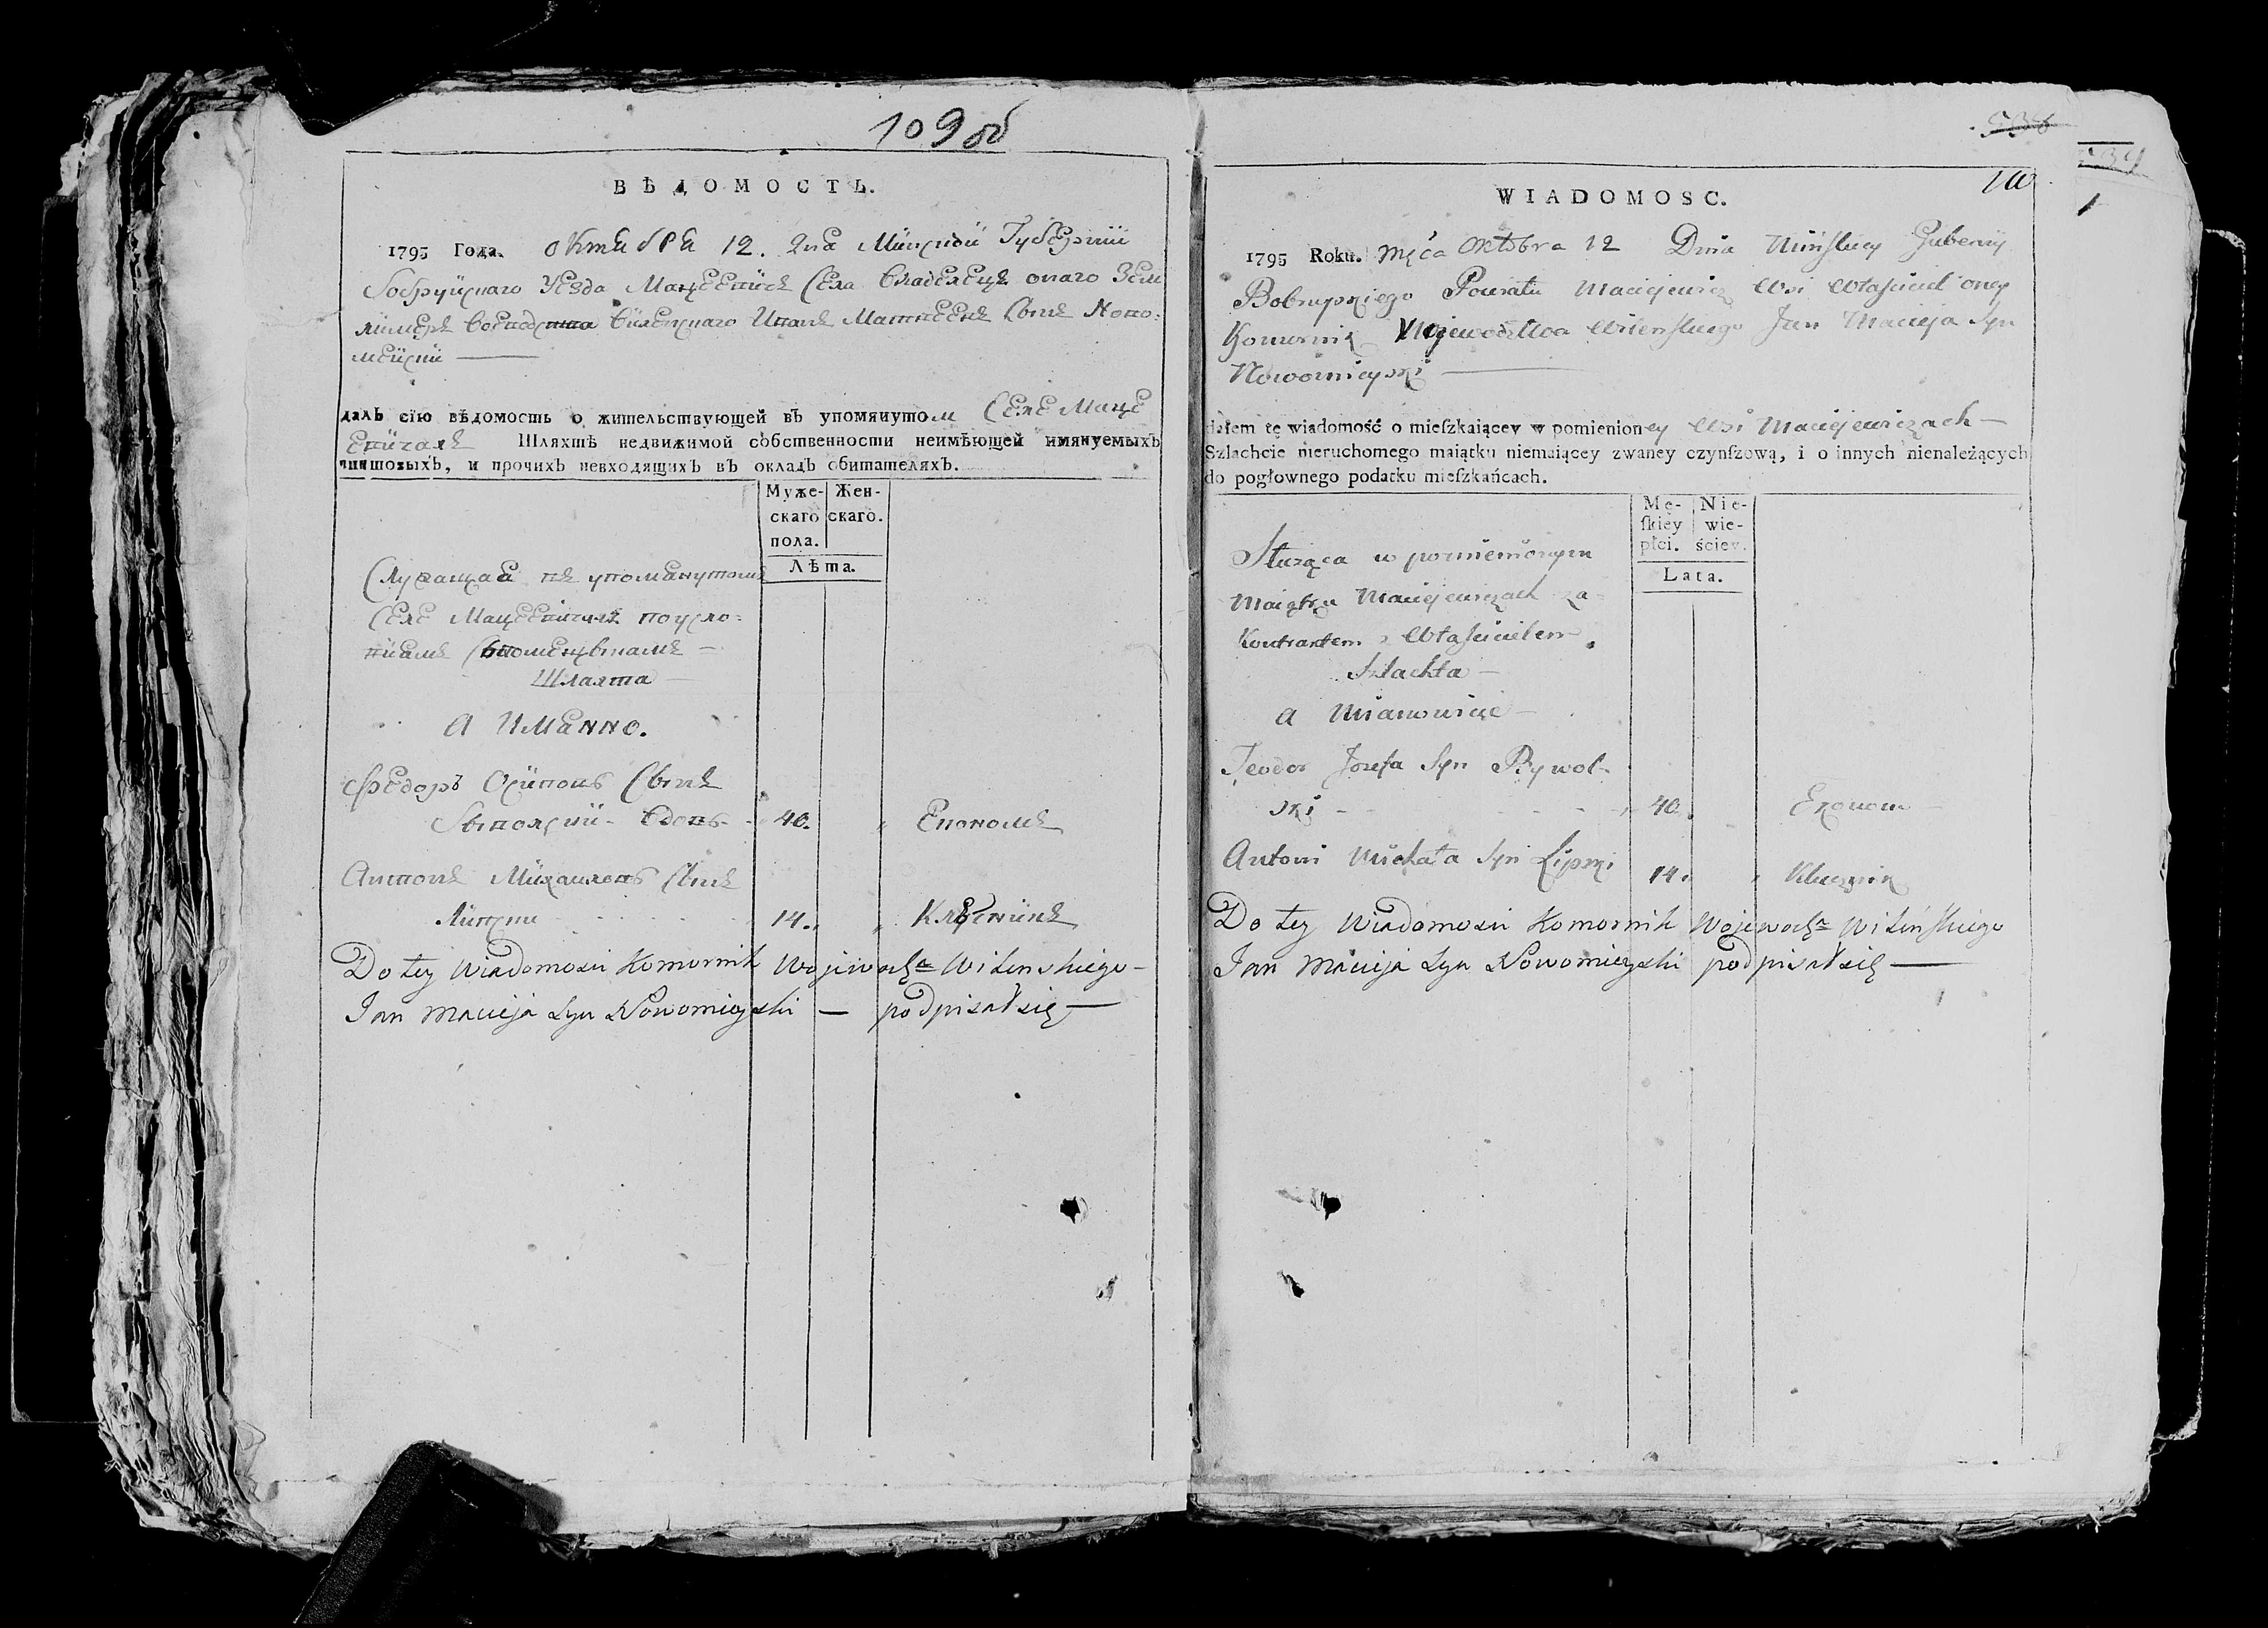 109 об
ВѢДОМОСТЬ.
1795 Года. октебре 12. дня Минской Губернии
Бобруйскаго Уезда Мацеевичъ Села владелецъ онаго Зем
лимеръ воеводства виленскаго Иванъ Матвеевъ Сынъ Ново:
мейский —
далъ сїю вѣдомость о жительствующей въ упомянутом Селе Маце
евичахъ Шляхтѣ недвижимой собственности неимѣющей имянуемыхъ
чиншовыхъ, и прочихъ невходящихъ въ окладъ обитателяхъ.
Муже- Жен-
скаго скаго.
пола.
Лѣта.
Служащая въ упомянутомъ
Селе Мацеевичахъ по усло:
виямъ
Шляхта —
А Иманно.
Федоръ Осиповъ Сынъ
Бывольский - вдовъ - 40. Економъ
Антонъ Михайловъ Сынъ
Липски 14. Ключникъ
Do tey Wiadomości Komornik Wojewodz Wilenskiego —
Jan Macieja Syn Nowomieyski — podpisał się —
110
WIADOMOSC.
1795 Roku. Mca Oktobra 12 Dnia Minskiey Gubernij
Bobruyskiego Powiatu Maciejewicz Wsi Właściciel oney
Komornik Wojewodztwa Wilenſkiego Jan Macieja Syn
Nowomieyski —
dałem tę wiadomość o mieſzkaiącey w pomienioney Wsi Maciejewiczach —
Szlachcie nieruchomego maiątku niemaiącey zwaney czynſzową, i o innych nienależących
do pogłownego podatku mieſzkańcach.
Mę- Nie-
ſkiey wie-
płci. ściey.
Lata.
Służąca w pomienionym
Maiątku Maciejewiczach za
Kontraktem z Właścicielem
Szlachta —
a Mianowicie —
Teodor Jozefa Syn Bywol-
ski - 40. Ekonom —
Antoni Michała Syn Lipski 14. Klucznik
Do tey Wiadomości Komornik Wojewodz Wilenſkiego
Jan Macieja Syn Nowomieyski podpisał się —